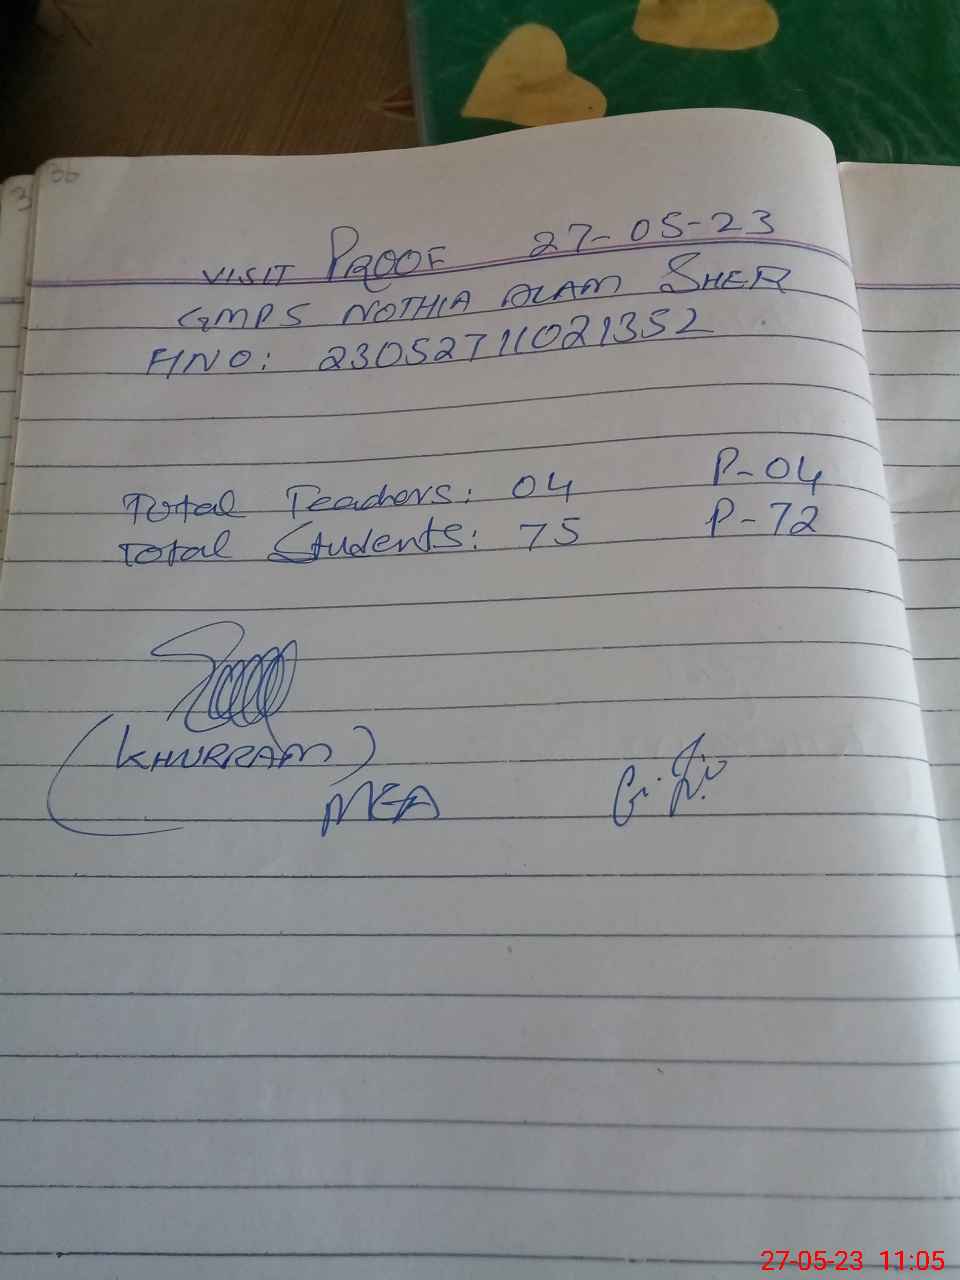 36
VISIT PROOF 27-05-23
GMPS NOTHIA ALAM SHER
FINO: 23052711021352
Total Teachers: 04 P-04
Total Students: 75 P-72
(KHURRAM)
MEA
27-05-23 11:05